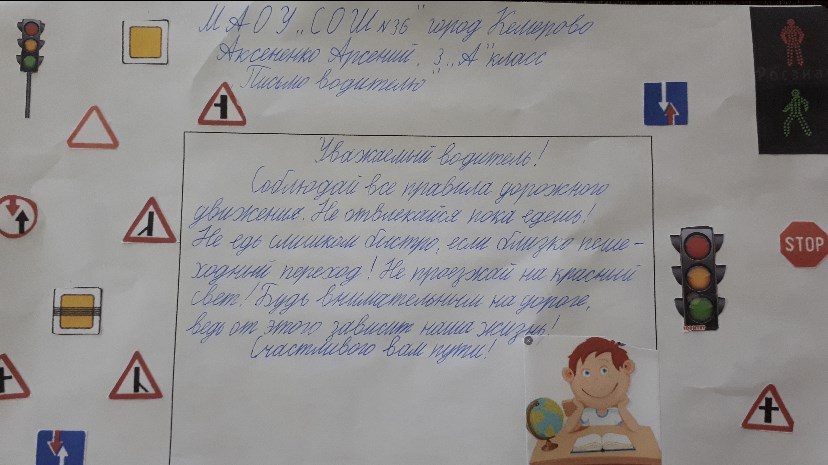 МАОУ „СОШ №36" город Кемерово
Аксененко Арсений. 3 „А" класс
Письмо водителю"
Уважаемый водитель!
Соблюдай все правила дорожного
движения. Не отвлекайся пока едешь!
Не едь слишком быстро, если близко пеше-
ходный переход! Не проезжай на красный
свет! Будь внимательным на дороге,
ведь от этого зависит наша жизнь!
Счастливого вам пути!
STOP